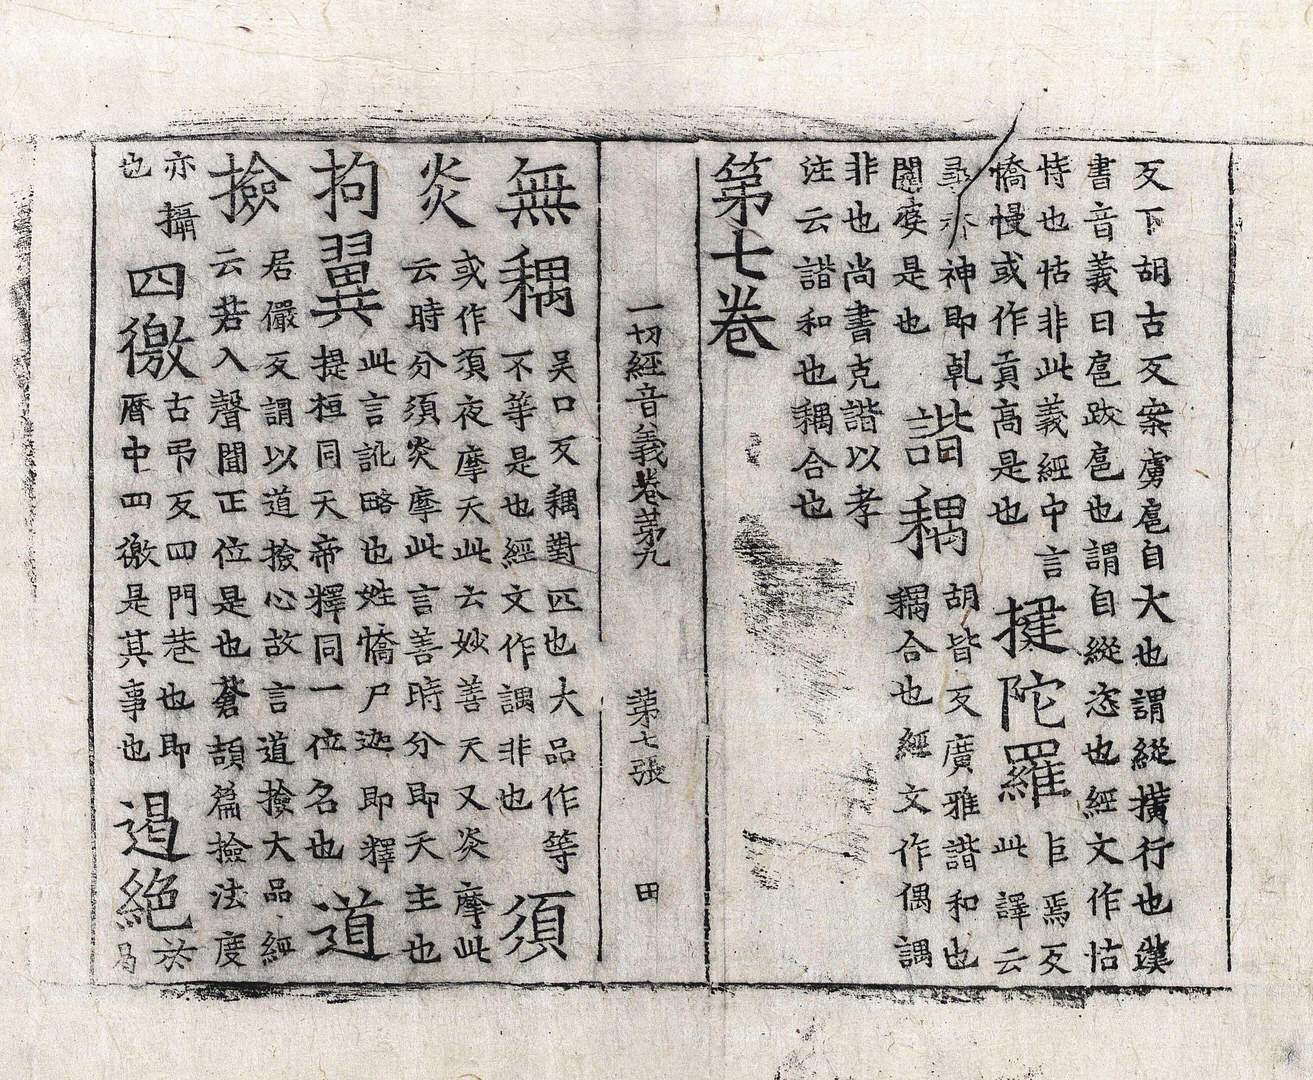 反下胡古反案虜扈自大也謂縱橫行也漢
書音義曰扈跋扈也謂自縱恣也經文作怙
恃也怙非此義經中言
憍慢或作貢高是也
揵陀羅
巨焉反
此譯云
尋亦神即乹
闥婆是也
諧耦
胡皆反廣雅諧和也
耦合也經文作偶諨
非也尚書克諧以孝
注云諧和也耦合也
第七卷
一切經音義卷苐九 苐七張 田
無耦
吴口反耦對匹也大品作等
不等是也經文作諨非也
須
炎
或作須夜摩天此云妙善天又炎摩此
云時分須炎摩此言善時分即天主也
拘翼
此言訛略也姓憍尸迦即釋
提桓同天帝釋同一位名也
道
撿
居儼反謂以道撿心故言道撿大品經
云若入聲聞正位是也蒼頡篇撿法度
亦攝
也
四徼
古弔反四門巷也即
曆中四徼是其事也
遏絕
於
曷